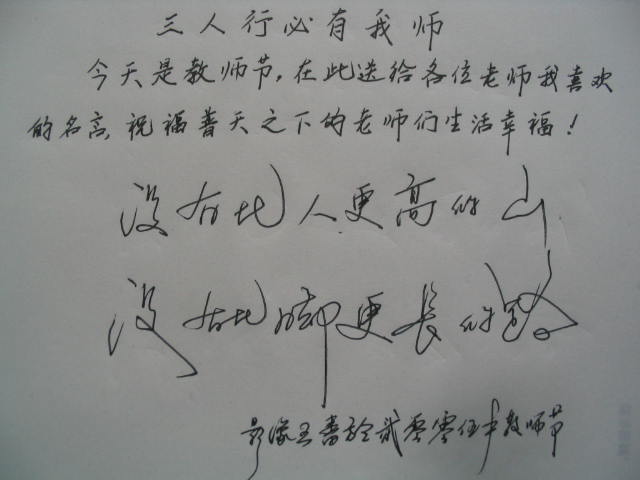 三人行必有我师
今天是教师节,在此送给各位老师我喜欢
的名言,祝福普天之下的老师们生活幸福!
没有比人更高的山
没有比脚更长的路
影像王书於贰零零伍年教师节